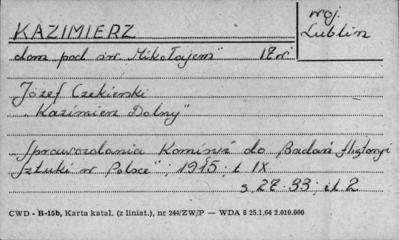 KAZIMIERZ
woj.
Lublin
dom pod św. Mikołajem" 17 w
Józef Czekierski
"Kazimierz Dolny"
"Sprawozdania Komisyi do Badań Hystoryi
Sztuki w Polsce", 1915 t IX
s 27-33; il 2
CWD - B-15b, Karta katal. (z liniat.), nr 244/ZW/P — WDA 8 25.1.64 2.010.000